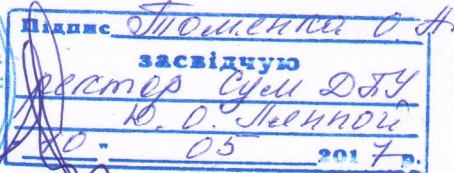 Підпис Томенка О А
засвідчую
ректор Сум ДПУ
Ю. О.
10 " 05 2017 р.